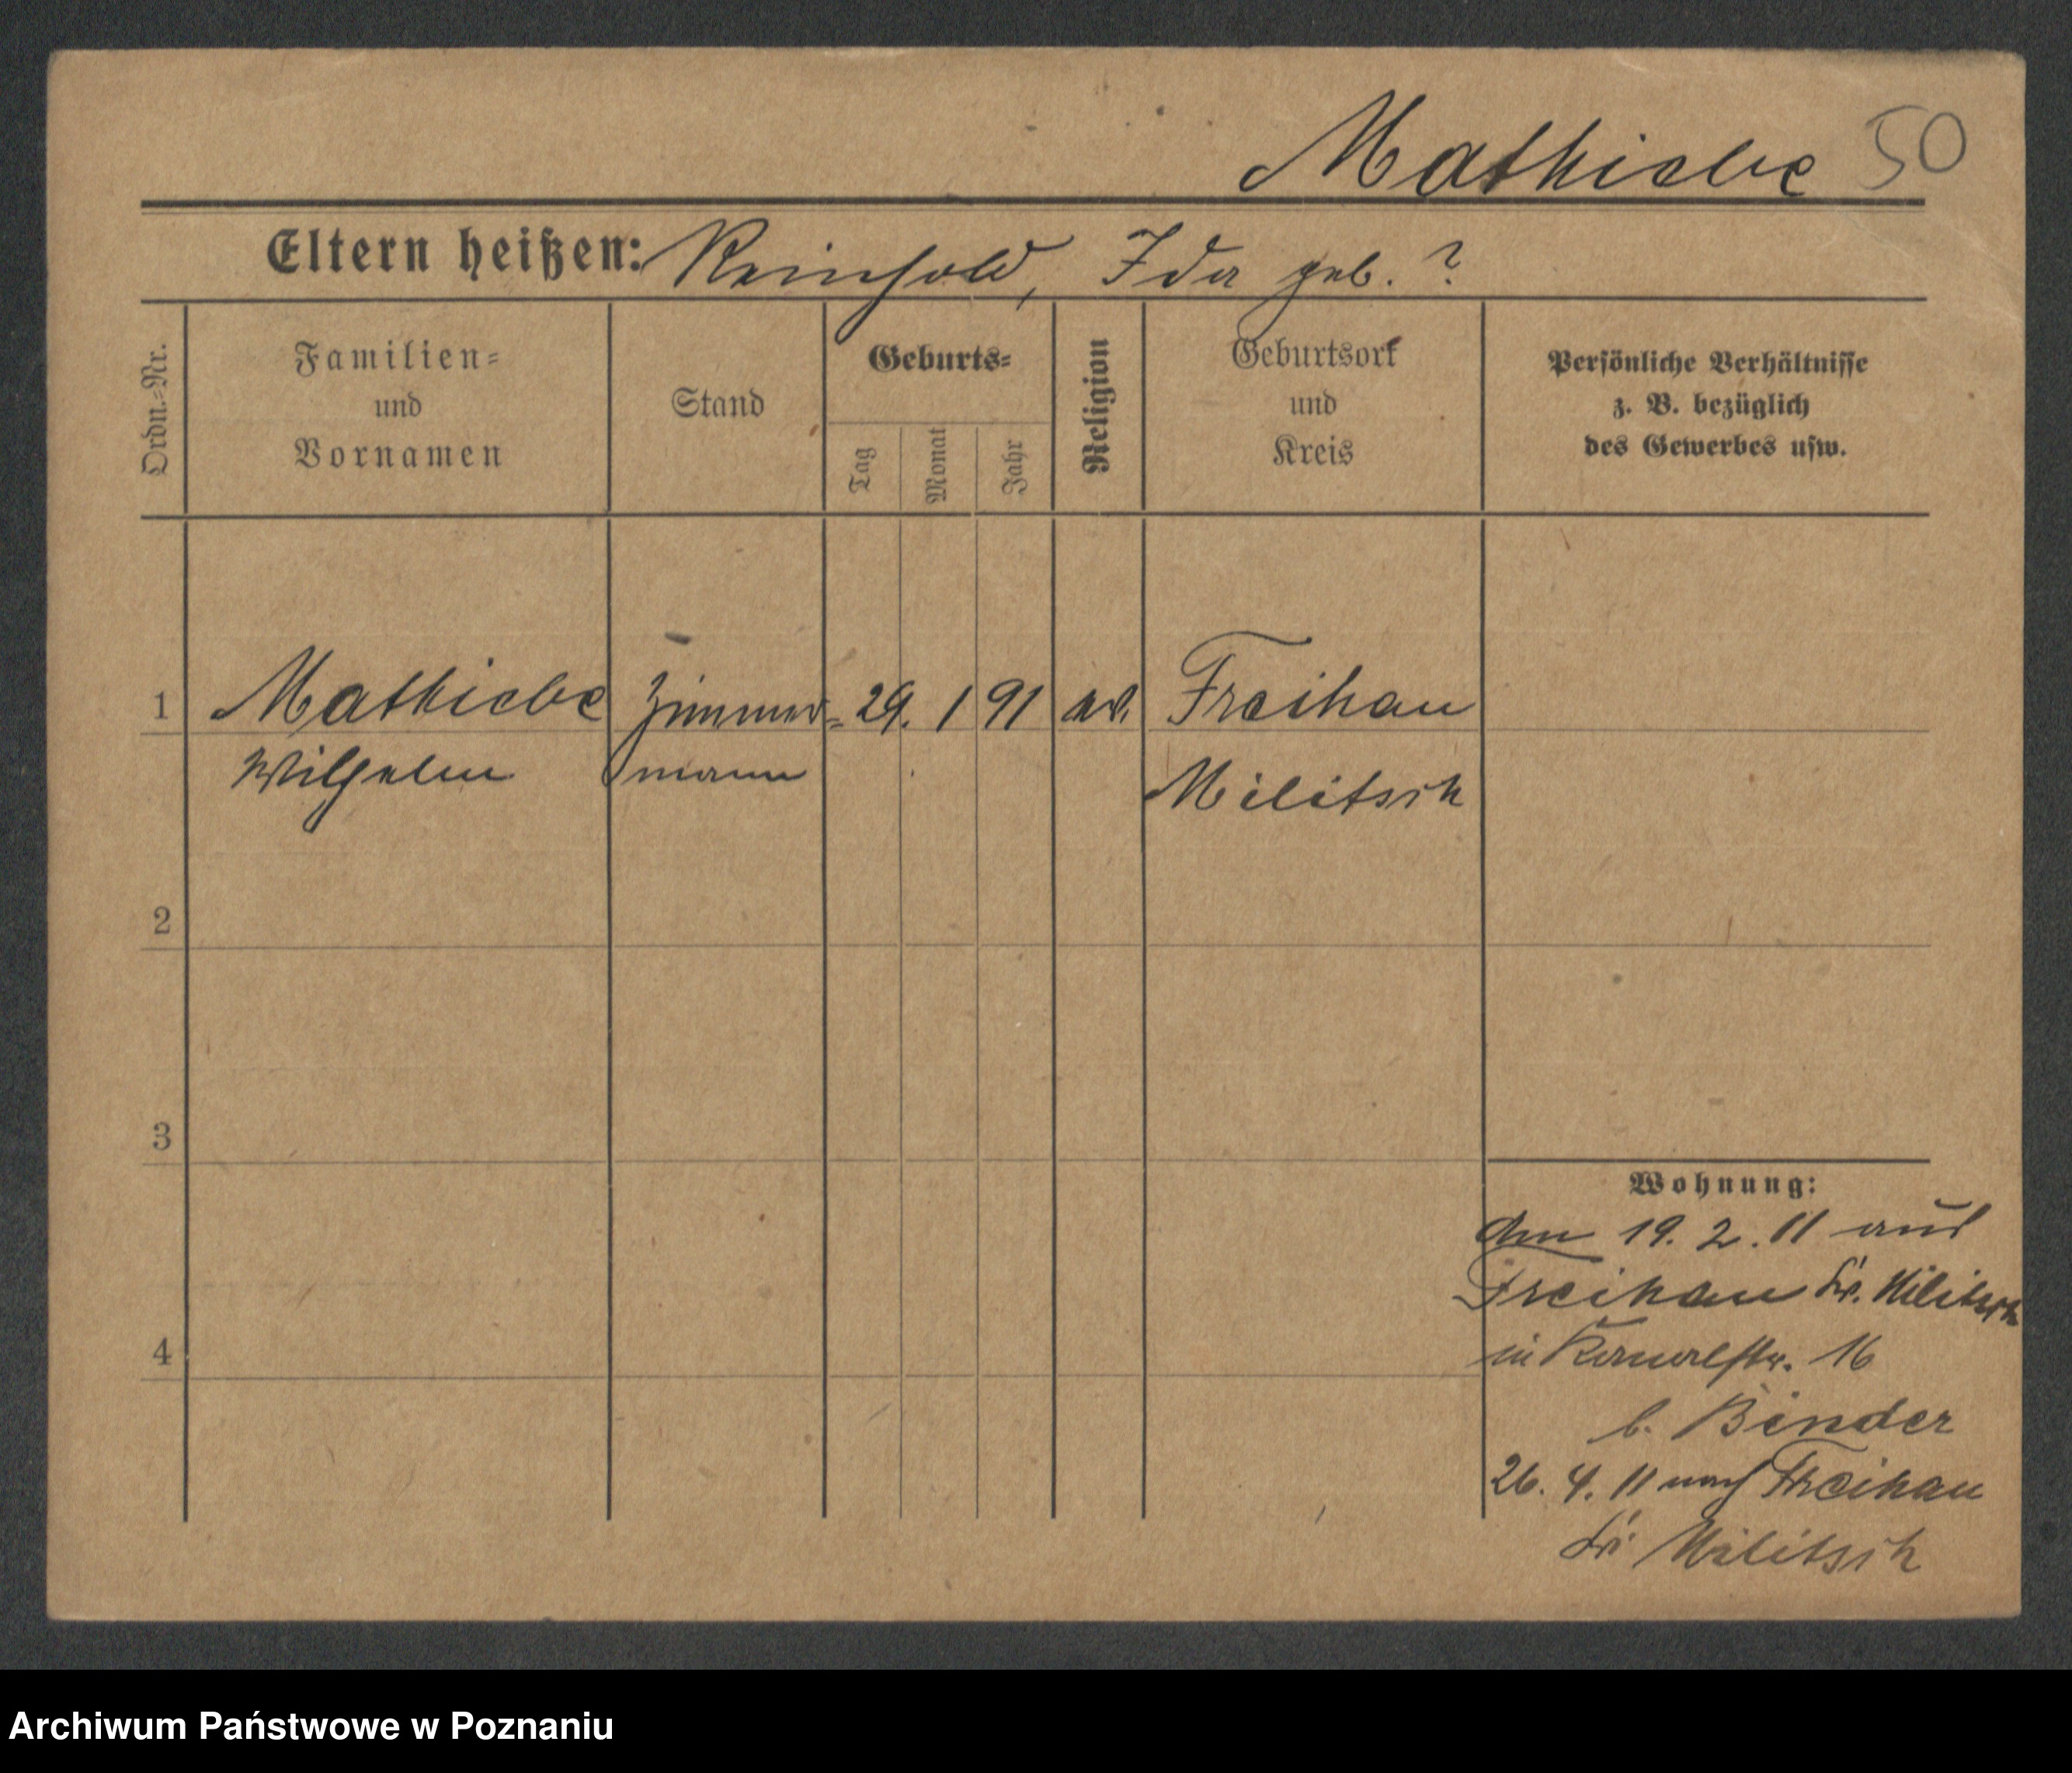 Mathiebe 50
Eltern heißen: Reinhold, Ida geb. ?
Ordn.-Nr.
Familien-
und
Vornamen
Stand
Geburts-
Tag
Monat
Jahr
Religion
Geburtsort
und
Kreis
Persönliche Verhältnisse
z. B. bezüglich
des Gewerbes usw.
1 Mathiebe Zimmer- 29. 1 91 ev. Freihan
Wilhelm mann Militsch
2
3
4
Wohnung:
Am 19. 2. 11 aus
Freihan Kr. Militsch
in Kanalstr. 16
b. Binder
26. 4. 11 nach Freihan
Kr. Militsch
Archiwum Państwowe w Poznaniu